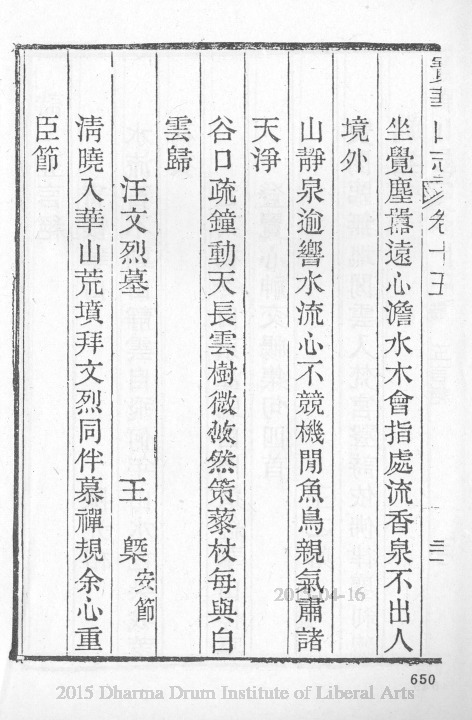 寶華山志 卷十五
坐覺塵囂遠心澹水木會指處流香泉不出人
境外
山靜泉逾響水流心不競機閒魚鳥親氣肅諸
天淨
谷口疏鐘動天長雲樹微悠然策藜杖每與白
雲歸
汪文烈墓 王 槩 安節
清曉入華山荒墳拜文烈同伴慕禪規余心重
臣節
650
2015 Dharma Drum Institute of Liberal Arts